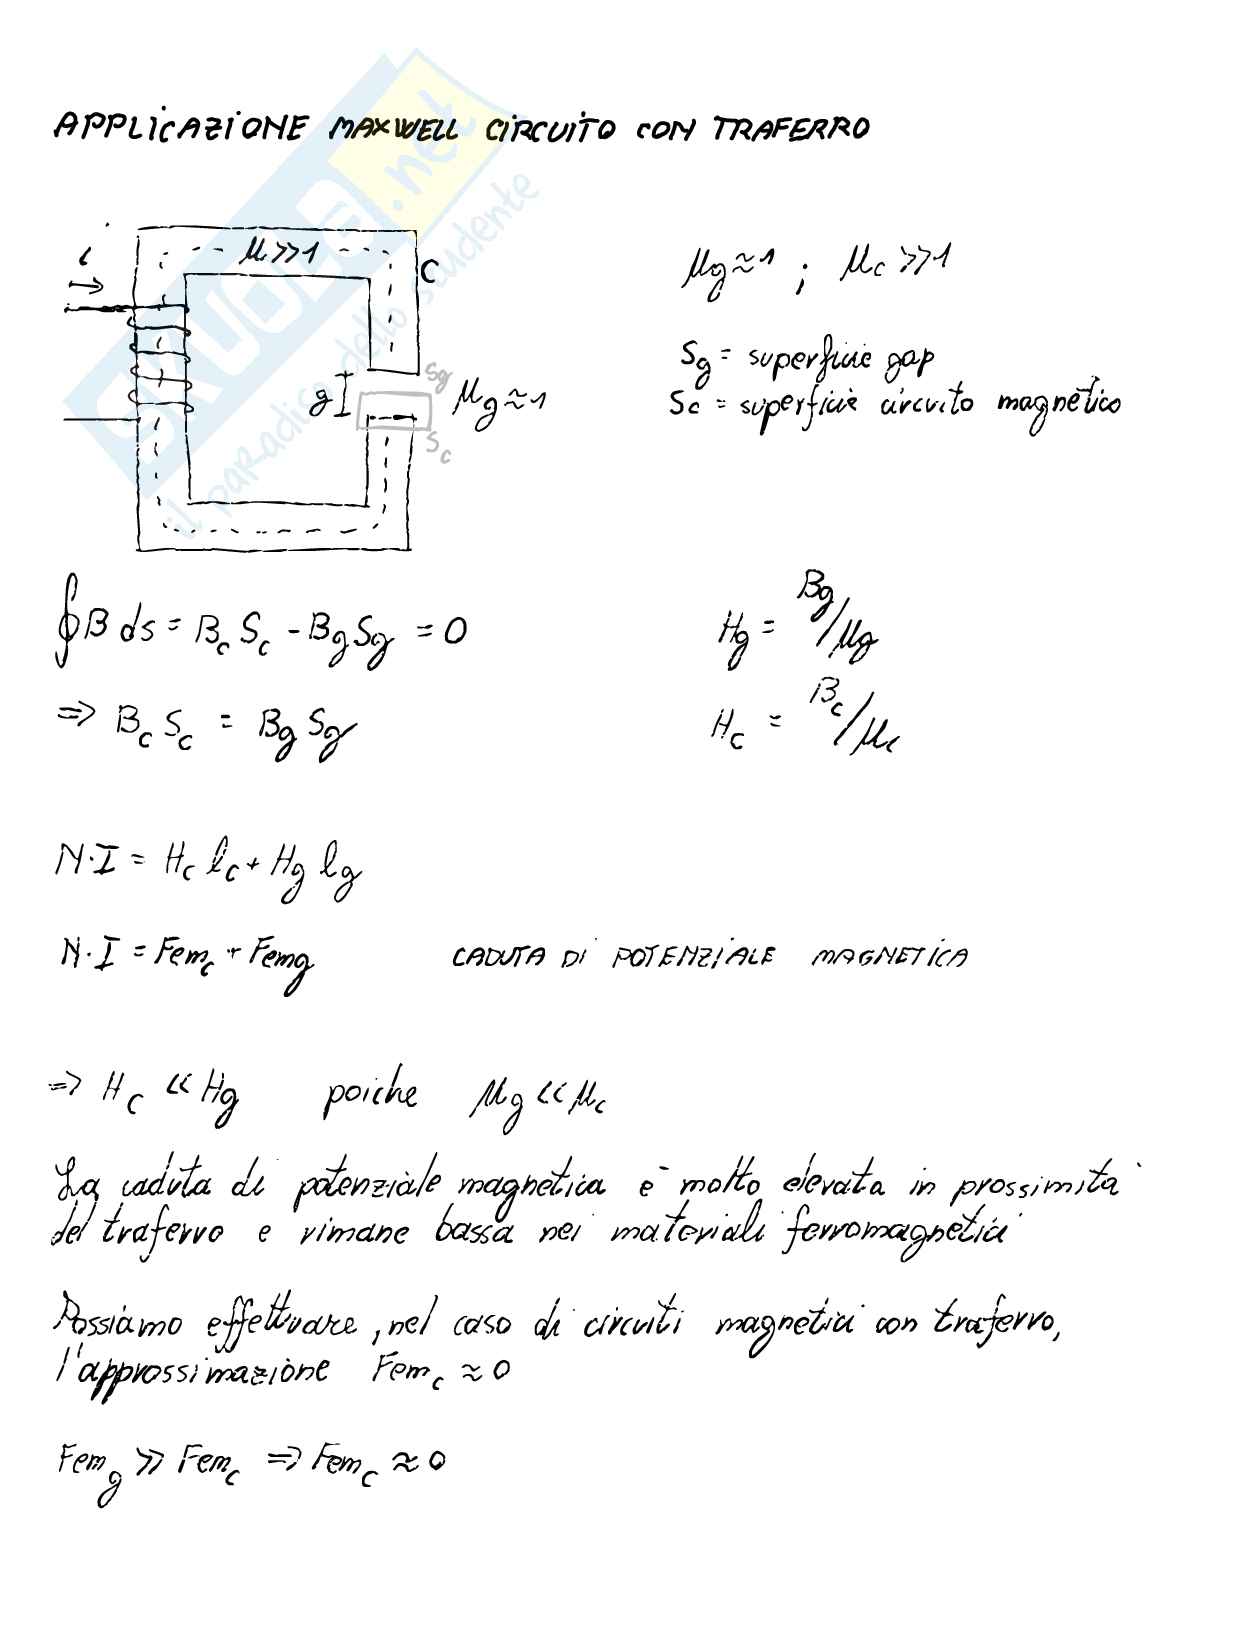 APPLICAZIONE MAXWELL CIRCUITO CON TRAFERRO
SKUOLA.net
il paradiso dello studente
i
μ>>1
C
g
Sg
Sc
μg≈1
μg≈1 ; μc>>1
Sg = superficie gap
Sc = superficie circuito magnetico
∮B ds = Bc Sc - Bg Sg = 0
Hg = Bg/μg
=> Bc Sc = Bg Sg
Hc = Bc/μc
N·I = Hc lc + Hg lg
N·I = Femc + Femg CADUTA DI POTENZIALE MAGNETICA
=> Hc << Hg poiche μg << μc
La caduta di potenziale magnetica è molto elevata in prossimità
del traferro e rimane bassa nei materiali ferromagnetici
Possiamo effettuare, nel caso di circuiti magnetici con traferro,
l'approssimazione Femc ≈ 0
Femg >> Femc => Femc ≈ 0